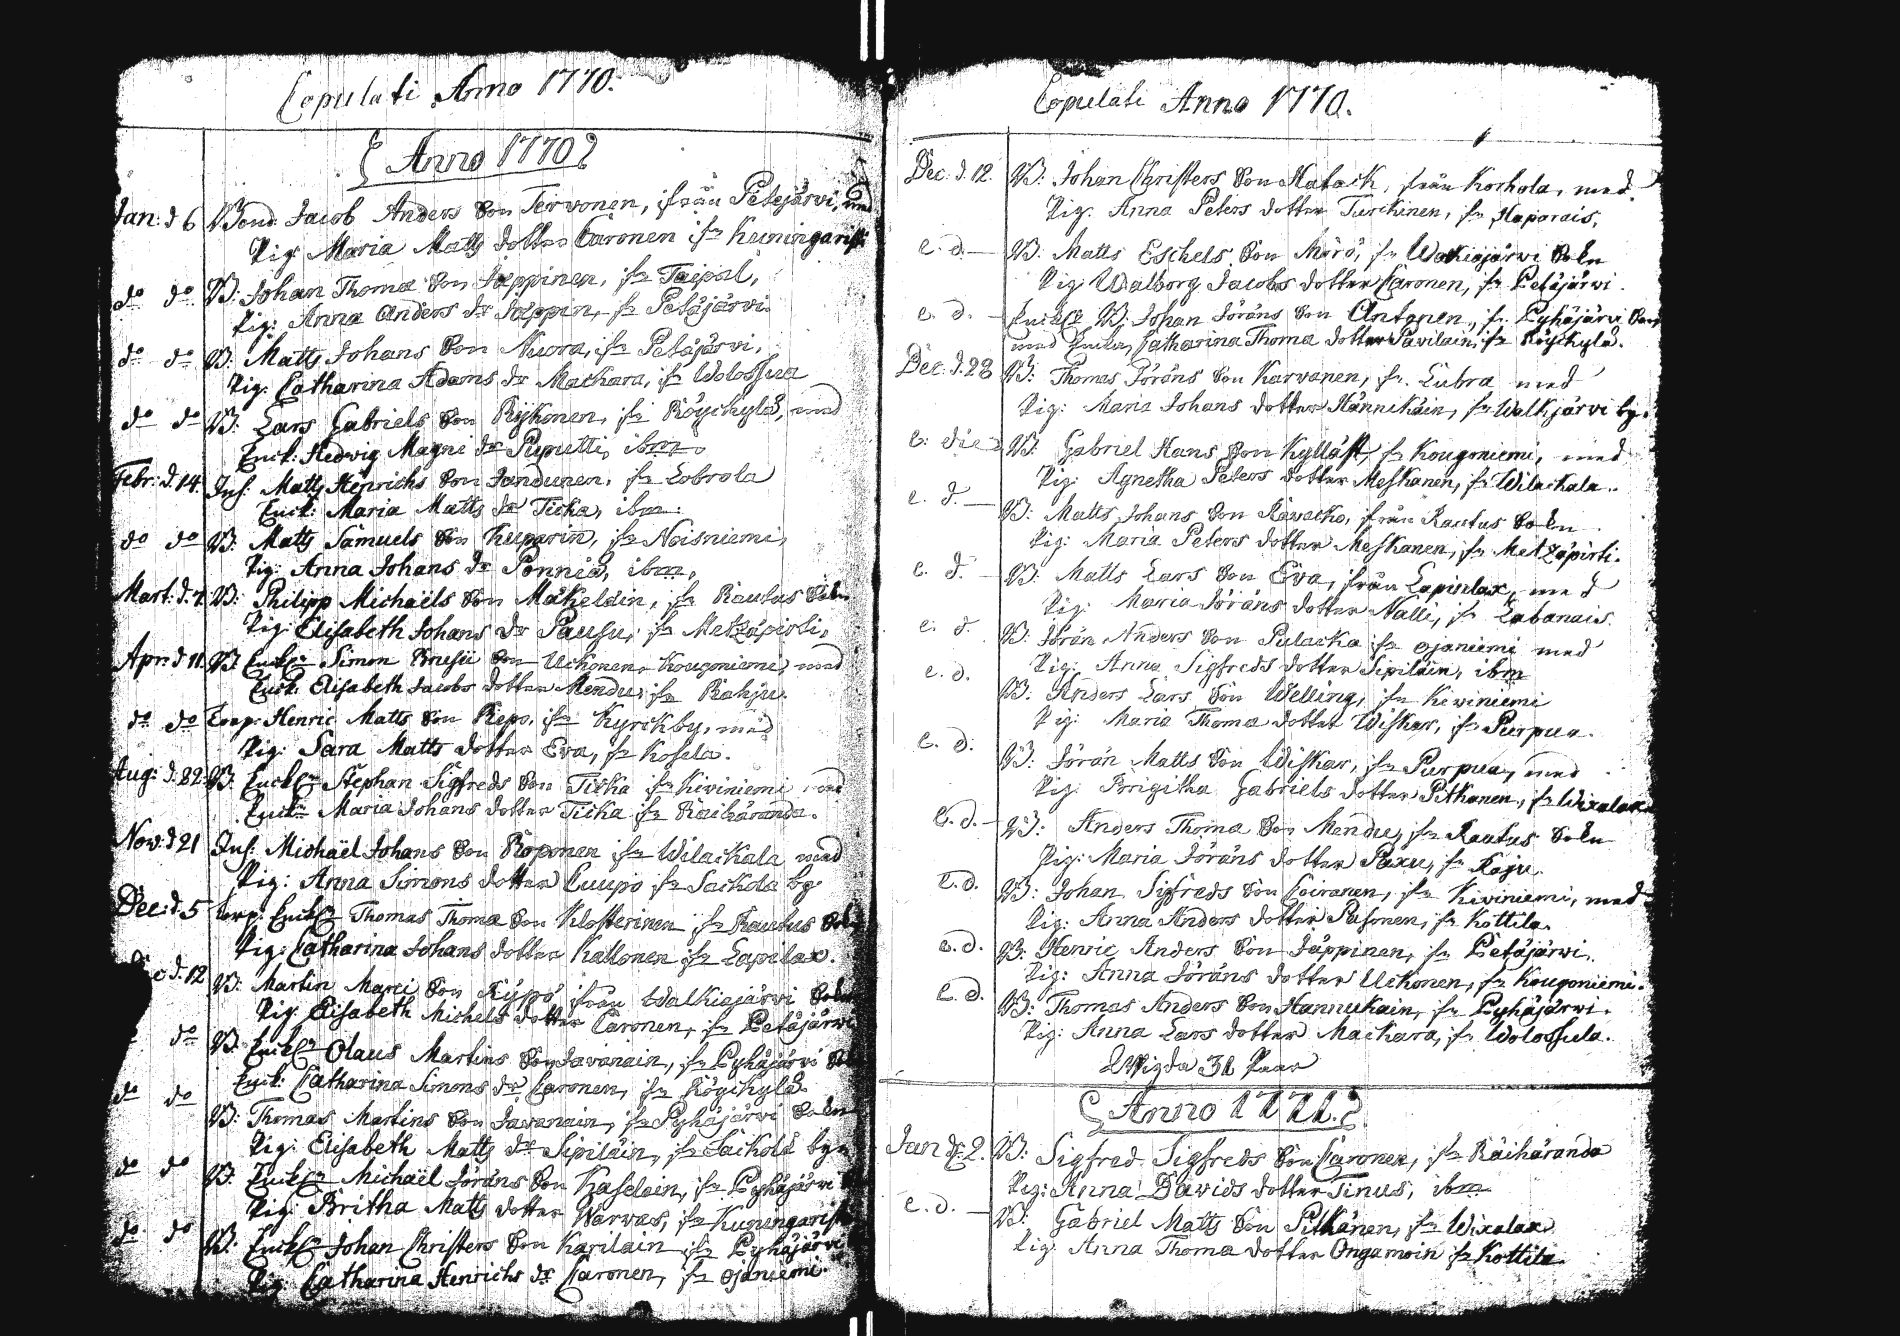 Copulati Anno 1770.
Anno 1770
Jan: d 6 Bond Jacob Anders Son Tervonen, ifrån Petejärvi, med
Pig: Maria Matts dotter Caronen ifr Kuningarist:
do do B: Johan Thomæ Son Jæppinen, ifr Taipal,
Pig: Anna Anders dr Jæppin, fr Petäjärvi.
do do B: Matts Johans Son Nuora, ifr Petäjärvi,
Pig: Catharina Adams dr Mackara, ifr Wolossua
do do B: Lars Gabriels Son Rykonen, ifr Röyckylä, med
Enck: Hedwig Magni dr Puputti, ibm.
Febr: d. 14. Inh: Matts Henrichs Son Jandunen, ifr Lobrola
Enck: Maria Matts dr Ticka, ibm.
do do B: Matts Samuels Son Kuparin, ifr Noisniemi,
Pig: Anna Johans dr Ponniå, ibm,
Mart: d. 4. B: Philipp Michaëls Son Mäkeläin, ifr Rautus Sokn
Pig: Elisabeth Johans dr Pausu, ifr Metzäpirti,
Apr: d 11. B Enckl: Simon Son Uckonen, Kougoniemi, med
Enck: Elisabeth Jacobs dotter Mendu, ifr Rahju.
do do Torp: Henric Matts Son Repo, ifr Kyrckby, med
Pig: Sara Matts dotter Eva, fr Kosela.
Aug: d. 22. B: Enckl: Stephan Sigfreds Son Ticka ifr Kiviniemi med
Enck: Maria Johans dotter Ticka ifr Räihäranda.
Nov: d 21 Inh: Michaël Johans Son Roponen ifr Wilackala med
Pig: Anna Simons dotter Cuupo ifr Sackola by
Dec: d. 5 torp: Enckl: Thomas Thomæ Son Klosterinen ifr Rautus Sok
Pig: Catharina Johans dotter Kallonen ifr Lapilax.
d. 12 B: Martin Marci Son Kyppö ifrån Walkiajärvi Sokn
Pig Elisabeth Michels dotter Caronen, ifr Petäjärwi
do B: Enckl: Olaus Martins Son Javanain, ifr Pyhäjärvi
Enck: Catharina Simons dr Caronen, ifr Rögckylä.
do do B: Thomas Martins Son Javanain, ifr Pyhäjärvi Sokn
Pig: Elisabeth Matts dr Sipiläin, ifr Sackola by
do do B: Enckl: Michaël Jöräns Son Kaseloin, ifr Pyhäjärvi
Pig: Britha Matts dotter Warwas, ifr Kunengarist
do do B: Enckl: Johan Christers Son Karilain ifr Pyhäjärvi
Pig: Catharina Henrichs dr Caronen, ifr Ojaniemi
Copulati Anno 1770.
Dec: d. 12. B: Johan Christers Son Matack, från Korhola, med
Pig: Anna Peters dotter Turckinen, fr Haparais.
e. d. B: Matts Eschels Son Mörö, fr Walkiajärwi Sokn
Pig: Walborg Jacobs dotter Caronen, fr Petäjärwi.
e. d. Enckl: B: Johan Jöräns Son Antonen, fr. Pyhäjärwi Son
med Encka, Catharina Thomæ dotter Pavilain, ifr Röyckylä.
Dec: d. 28 B: Thomas Jöräns Son Karvanen, fr. Lubra med
Pig: Maria Johans dotter Hännikäin, fr Walkjärwi by.
e: die B: Gabriel Hans Son Kylläst, fr Kougoniemi, med
Pig: Agnetha Peters dotter Meskanen, fr Wilackala.
e. d. B: Matts Johans Son Råvacko, från Rautus Sokn
Pig: Maria Peters dotter Meskanen, ifr Metzäpirti.
e. d. B: Matts Lars Son Eva, ifrån Lapinlax, med
Pig: Maria Jöräns dotter Nalli, fr Labanais.
e. d. B: Jörän Anders Son Pulacka ifr Ojaniemi med
Pig: Anna Sigfreds dotter Sipiläin, ibm
e. d. B: Anders Lars Son Welling, ifr Kiviniemi
Pig: Maria Thomæ dotter Wiskar, ifr Purpua.
e. d. B: Jörän Matts Son Wiskar, ifr Purpua, med
Pig: Brigitha Gabriels dotter Pitkanen, fr Wixalax
e. d. B: Anders Thomæ Son Mendu, ifr Rautus Sokn
Pig: Maria Jöräns dotter Paxu, fr Raju.
e. d. B: Johan Sigfreds Son Coiranen, ifr Kiviniemi, med
Pig: Anna Anders dotter Pusonen, fr Kottila.
e. d. B: Henric Anders Son Jäppinen, ifr Petäjärwi,
Pig: Anna Jöräns dotter Uckonen, fr Kougoniemi.
e. d. B: Thomas Anders Son Hannukain, ifr Pyhäjärwi.
Pig: Anna Lars dotter Mackara, ifr Wolossula.
Wigda 31 Paar
Anno 1771.
Jan d. 2. B: Sigfred Sigfreds Son Caronen, ifr Räihäranda
Pig: Anna Davids dotter Tinus, ibm
e. d. B: Gabriel Matts Son Pitkänen, ifr Wixalax
Pig: Anna Thomæ dotter Ongamoin ifr Kottila.